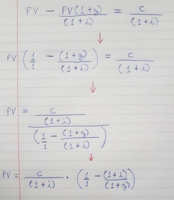 PV - PV(1+g)/(1+i) = C/(1+i)
PV (1/1 - (1+g)/(1+i)) = C/(1+i)
PV = (C/(1+i)) / (1/1 - (1+g)/(1+i))
PV = C/(1+i) · (1/1 - (1+i)/(1+g))